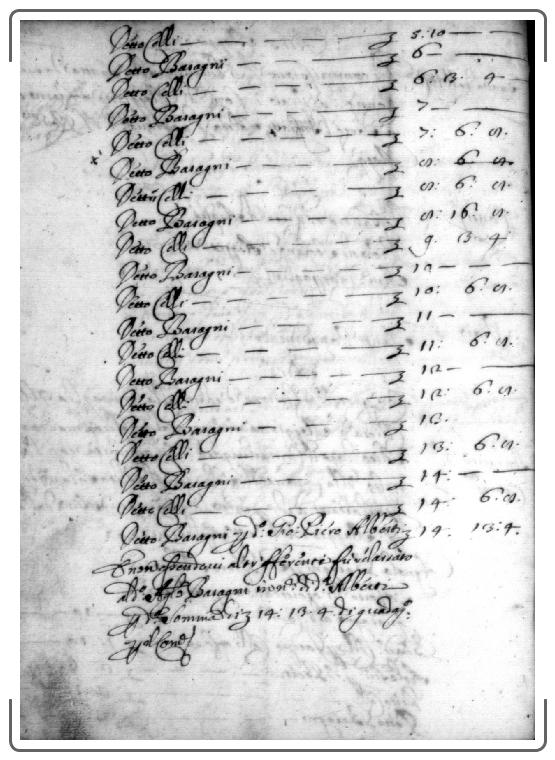 Detto Celli — — — — £ 5:10 —
Detto Baragni — — — £ 6 —
Detto Celli — — — — £ 6: 13: 4
Detto Baragni — — — £ 7 —
Detto Celli — — — — £ 7: 6: 8.
x Detto Baragni — — — £ 8: 6: 8.
Detto Celli — — — — £ 8: 6: 8.
Detto Baragni — — — £ 8: 16: 8.
Detto Celli — — — — £ 9. 13 4:
Detto Baragni — — — £ 10 —
Detto Celli — — — — £ 10: 6: 8.
Detto Baragni — — — £ 11 —
Detto Celli — — — — £ 11: 6: 8.
Detto Baragni — — — £ 12 —
Detto Celli — — — — £ 12: 6: 8.
Detto Baragni — — — £ 13.
Detto Celli — — — — £ 13: 6: 8.
Detto Baragni — — — £ 14: —
Detto Celli — — — — £ 14: 6: 8.
Detto Baragni Gio: Piero Alberti £ 14. 13:4.
E non essendovi altri offerenti fu rilasciato
Baragni in nome di Alberti
somma di £ 14: 13: 4